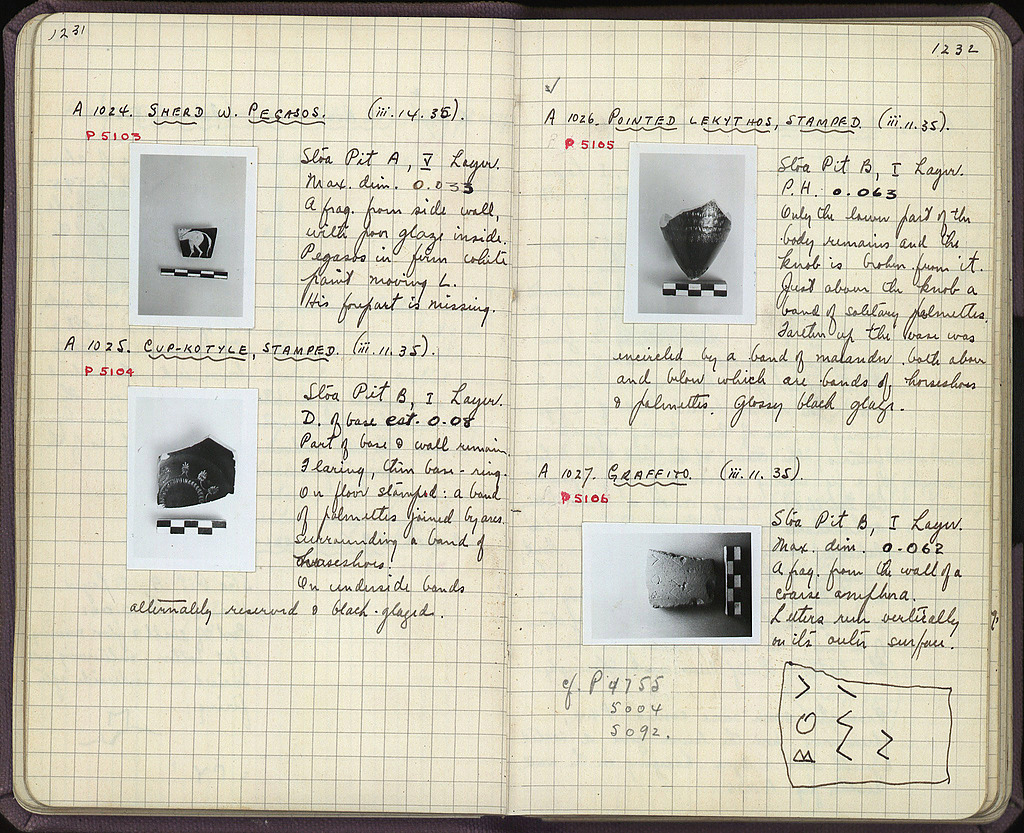 1231
A 1024. SHERD W. PEGASOS. (iii.14.35).
P 5103
Stoa Pit A, V Layer.
Max. dim. 0.033
A frag. from side wall,
with poor glaze inside.
Pegasos in firm white
paint moving L.
His forepart is missing.
A 1025. CUP-KOTYLE, STAMPED. (iii.11.35).
P 5104
Stoa Pit B, I Layer.
D. of base est. 0.08
Part of base & wall remain.
Flaring, thin base-ring.
On floor stamped: a band
of palmettes joined by arcs
surrounding a band of
horseshoes.
On underside bands
alternately reserved & black-glazed.
1232
A 1026. POINTED LEKYTHOS, STAMPED. (iii.11.35).
P 5105
Stoa Pit B, I Layer.
P.H. 0.063
Only the lower part of the
body remains and the
knob is broken from it.
Just above the knob a
band of solitary palmettes.
Farther up the vase was
encircled by a band of maeander both above
and below which are bands of horseshoes
& palmettes. Glossy black glaze.
A 1027. GRAFFITO. (iii.11.35).
P 5106
Stoa Pit B, I Layer.
Max. dim. 0.062
A frag. from the wall of a
coarse amphora.
Letters run vertically
on its outer surface.
cf. P 4755
5004
5092.